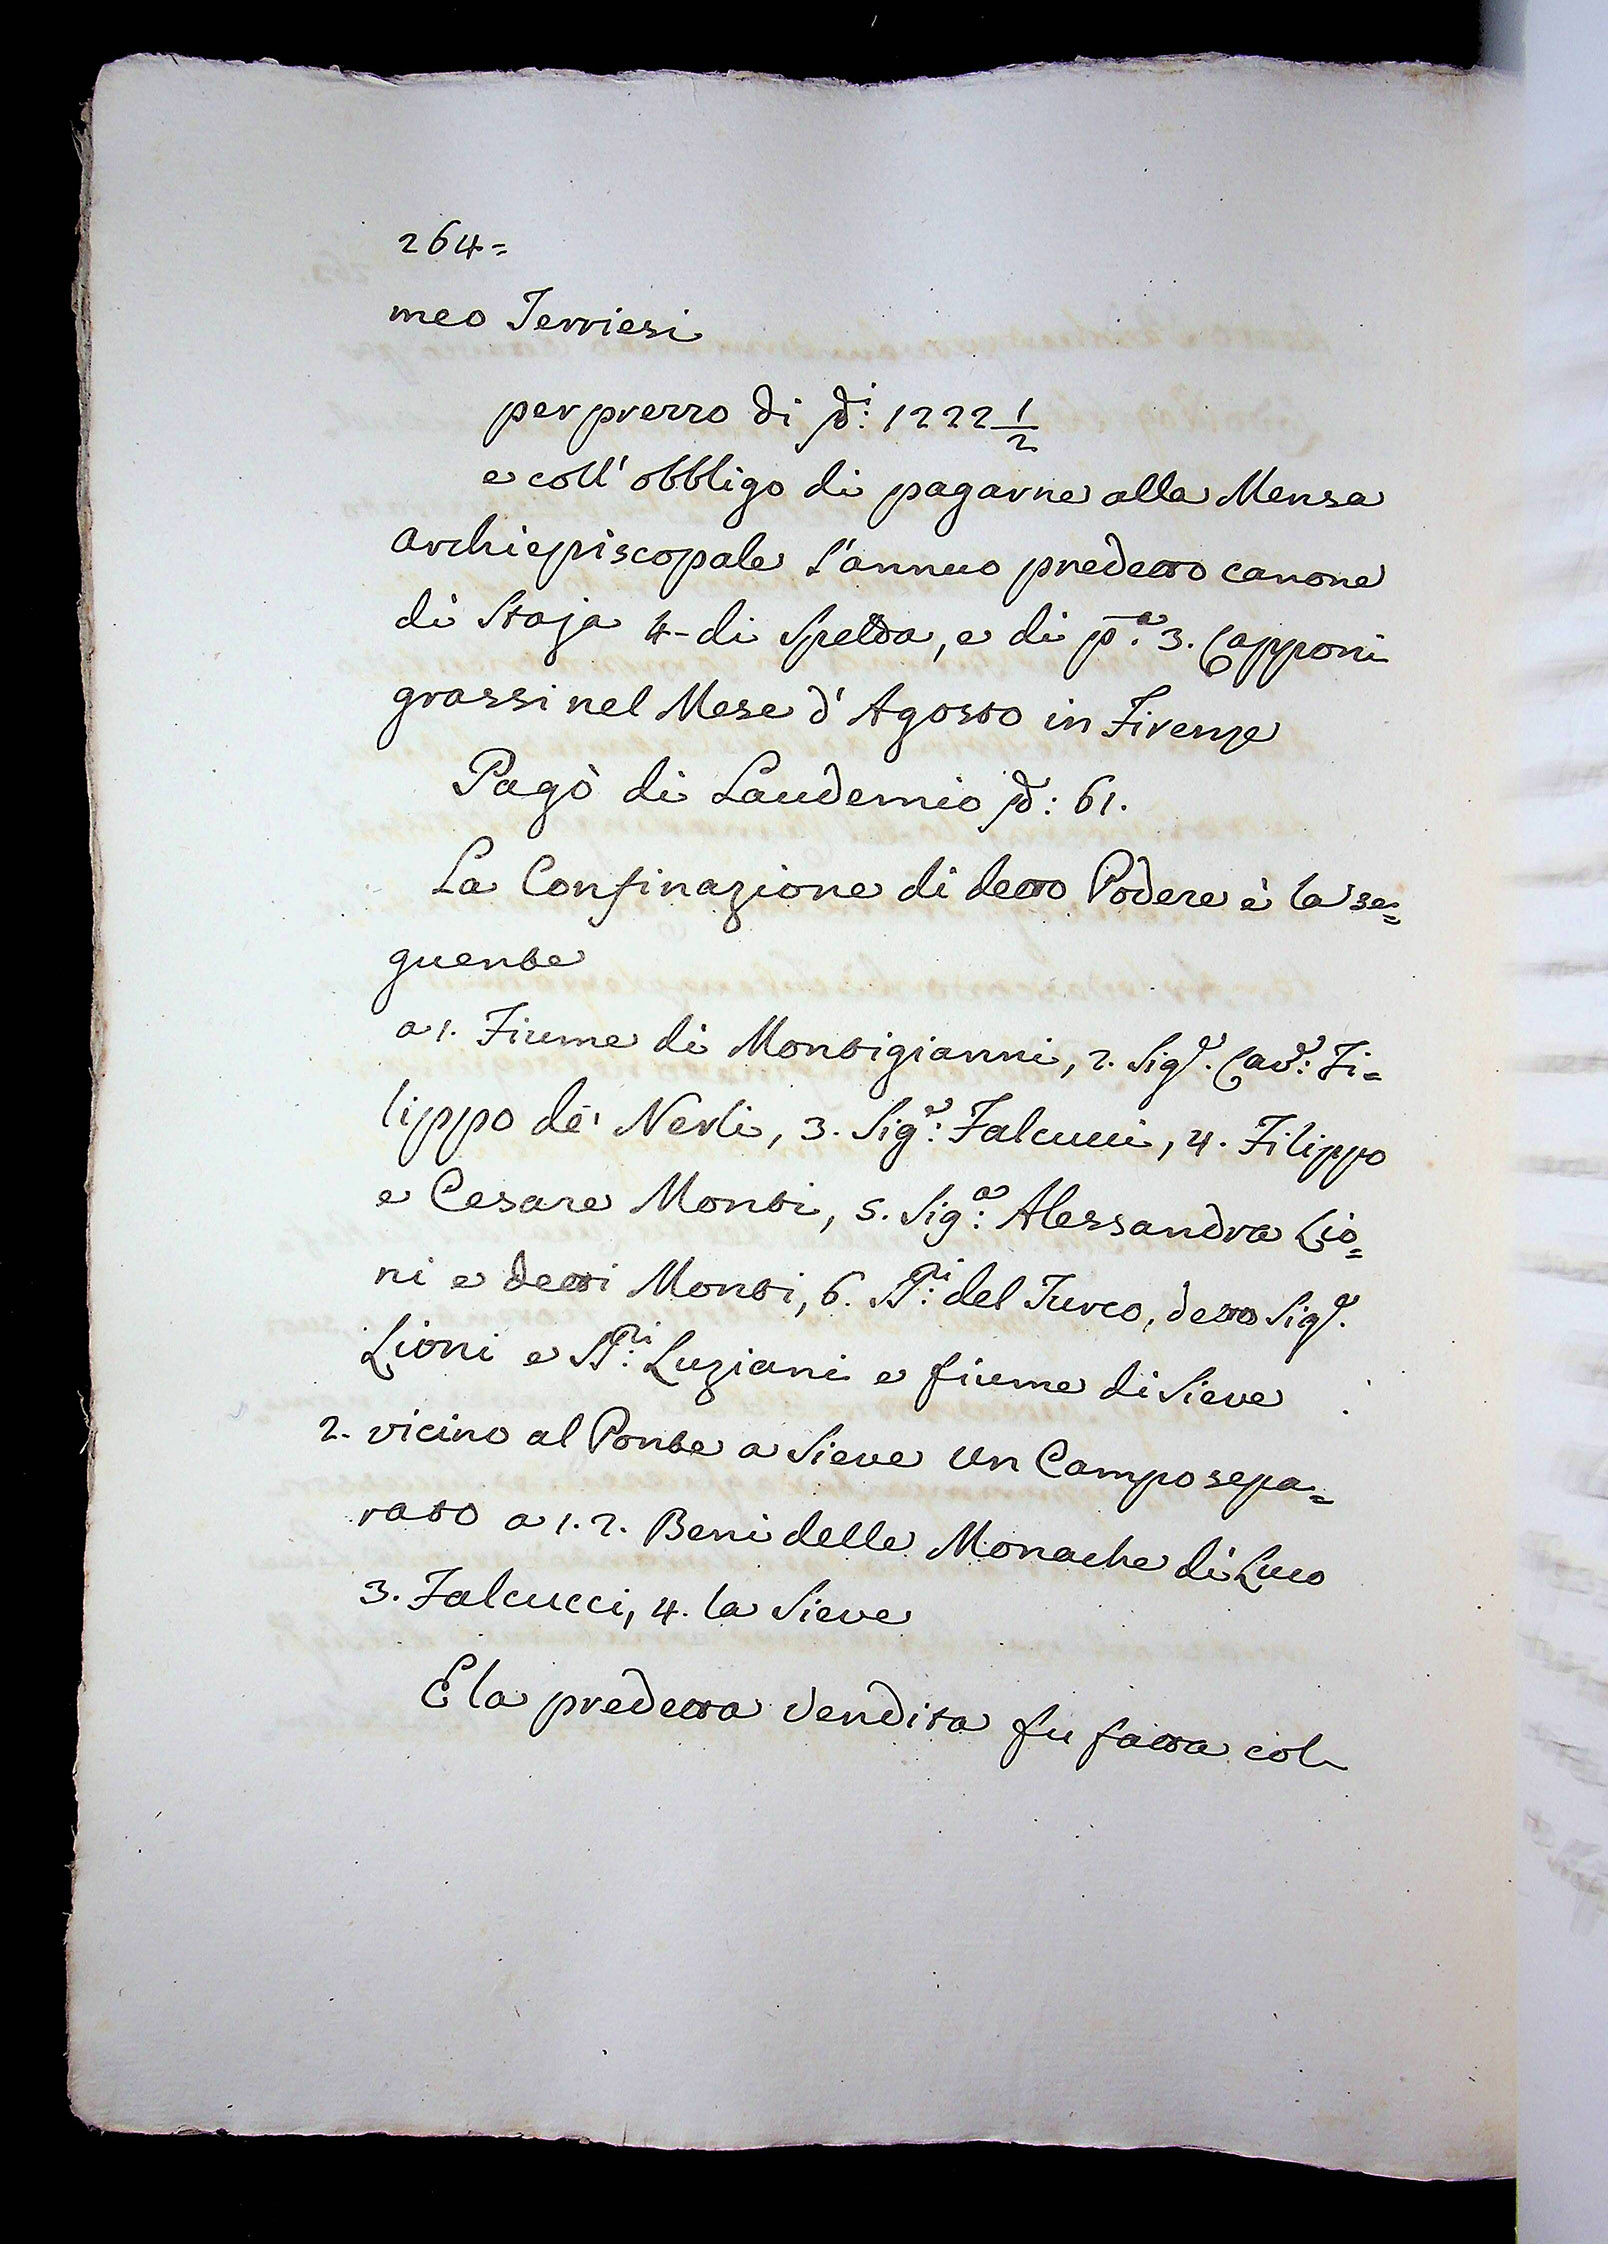 264=
meo Terriesi
per prezzo di ∂i: 1222 1/2
e coll' obbligo di pagarne alla Mensa
Archiepiscopale l'annuo predetto canone
di Staja 4- di Spelda, e di p.a 3. Capponi
grassi nel Mese d' Agosto in Firenze
Pagò di Laudemio ∂: 61.
La Confinazione di detto Podere è la se=
guente
a 1. Fiume di Montigianni, 2. Sigr. Cavr: Fi=
lippo de' Nerli, 3. Sigr: Falcucci, 4. Filippo
e Cesare Monti, 5. Siga: Alessandra Lio=
ni e detti Monti, 6. SSri: del Turco, detto Sigr.
Lioni e SSri: Luziani e fiume di Sieve
2. vicino al Ponte a Sieve Un Campo sepa=
rato a 1. 2. Beni delle Monache di Luco
3. Falcucci, 4. la Sieve
E la predetta Vendita fu fatta col